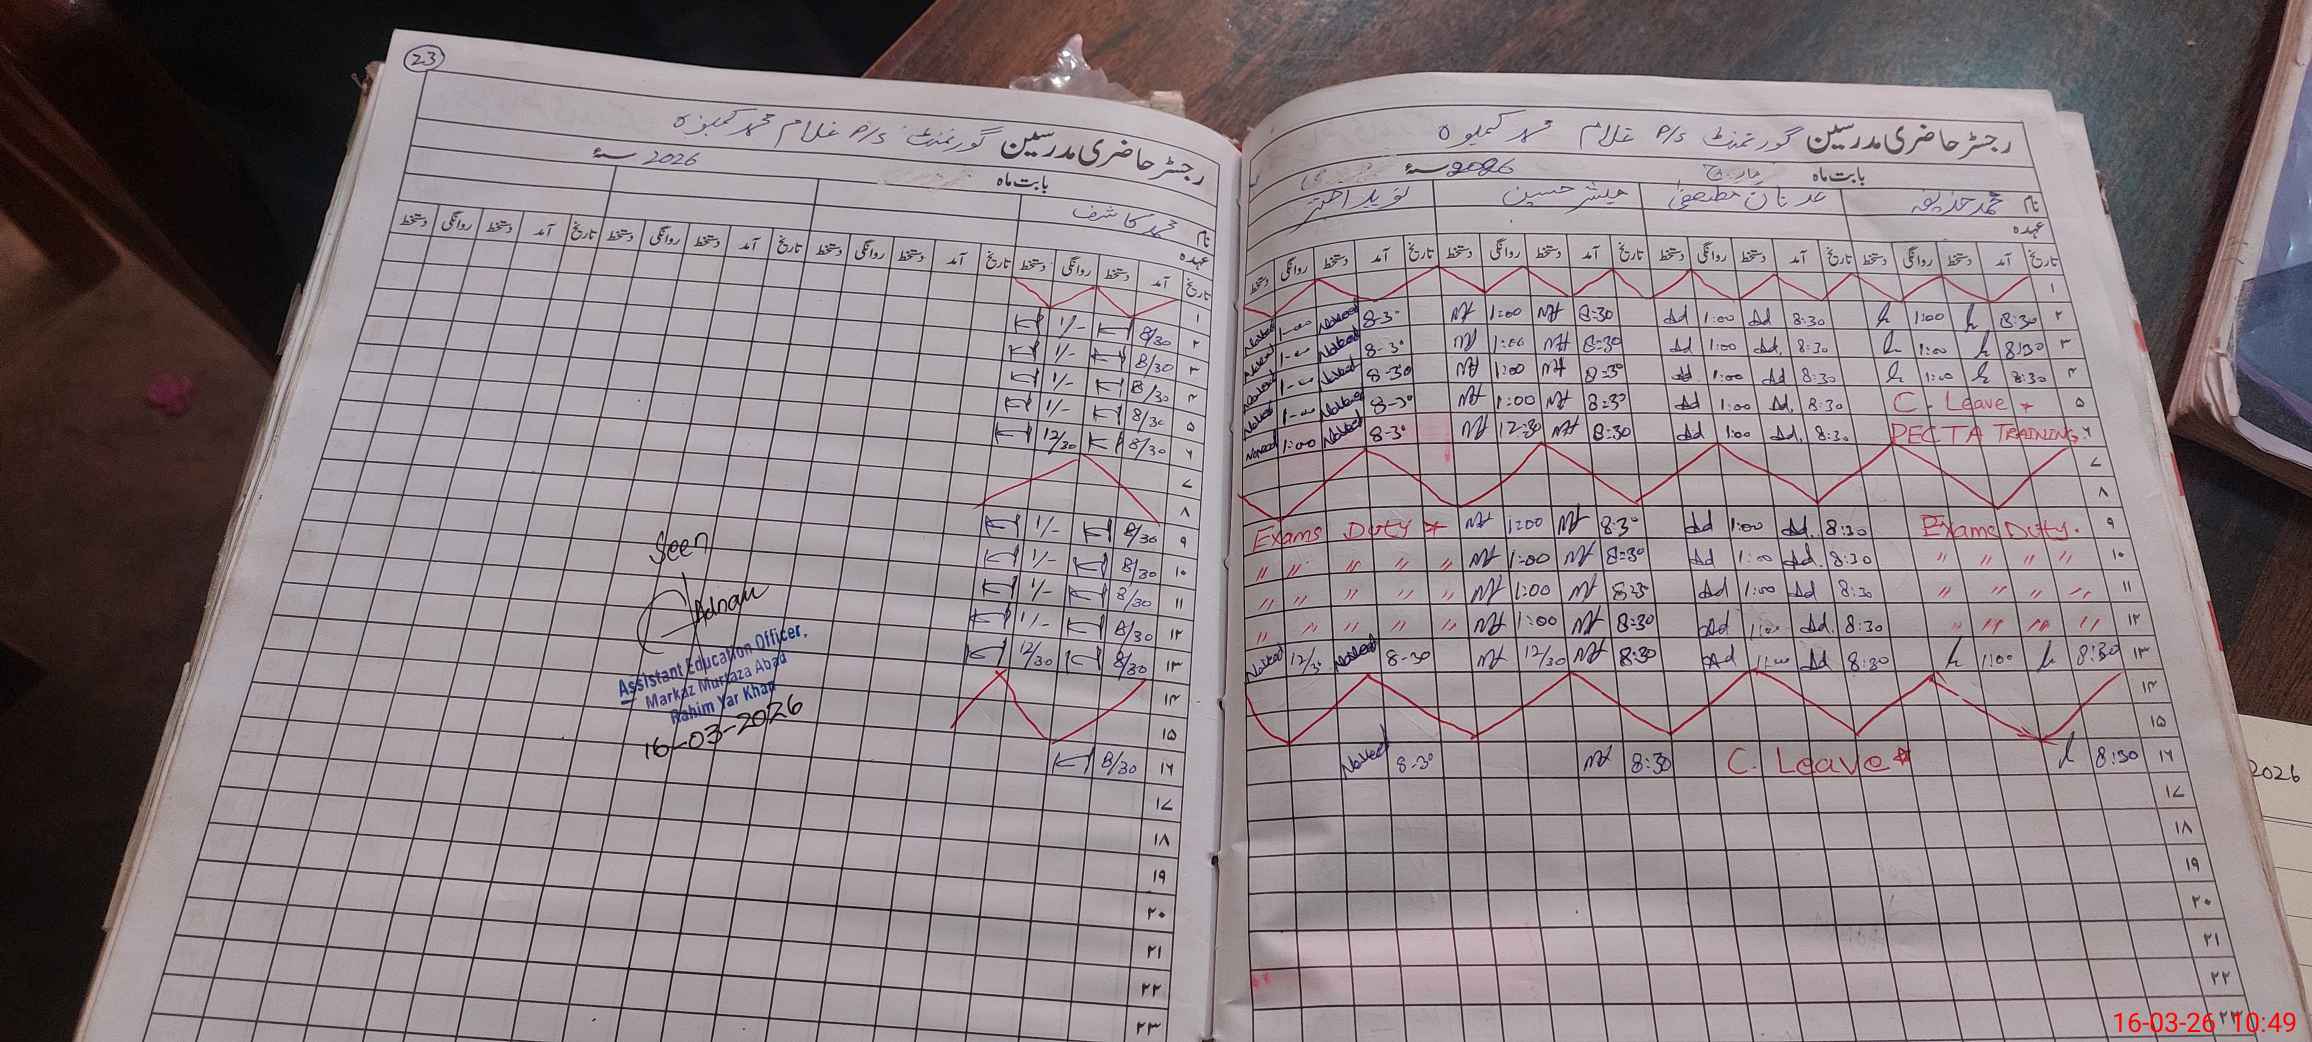 رجسٹر حاضری مدرسین گورنمنٹ P/S غلام محمد کمبوہ
بابت ماہ مارچ 2026 سنۂ
نام محمد حذیفہ عدنان مصطفیٰ مبشر حسین نوید اختر
عہدہ
تاریخ آمد دستخط روانگی دستخط تاریخ آمد دستخط روانگی دستخط تاریخ آمد دستخط روانگی دستخط تاریخ آمد دستخط روانگی دستخط
۱
۲ 8:30 1:00 8:30 Ad 1:00 Ad 8:30 1:00 8-30 Naveed 1-00 Naveed
۳ 8:30 1:00 8:30 Ad 1:00 Ad 8:30 1:00 8-30 Naveed 1-00 Naveed
۴ 8:30 1:00 8:30 Ad 1:00 Ad 8:30 1:00 8-30 Naveed 1-00 Naveed
۵ C. Leave 8:30 Ad 1:00 Ad 8:30 1:00 8-30 Naveed 1-00 Naveed
۶ PECTA TRAINING 8:30 Ad 1:00 Ad 8:30 12:30 8-30 Naveed 1:00 Naveed
۷
۸
۹ Exams Duty. 8:30 Ad 1:00 Ad 8:30 1:00 Exams Duty
۱۰ " " " " 8:30 Ad 1:00 Ad 8:30 1:00 " " " " "
۱۱ " " " " 8:30 Ad 1:00 Ad 8:30 1:00 " " " " "
۱۲ " " " " 8:30 Ad 1:00 Ad 8:30 1:00 " " " " "
۱۳ 8:30 1:00 8:30 Ad 1:00 Ad 8:30 12/30 8-30 Naveed 12/30 Naveed
۱۴
۱۵
۱۶ 8:30 C. Leave 8:30 8-30 Naveed
۱۷
۱۸
۱۹
۲۰
۲۱
۲۲
۲۳
23
رجسٹر حاضری مدرسین گورنمنٹ P/S غلام محمد کمبوہ
بابت ماہ 2026 سنۂ
نام محمد کاشف
عہدہ
تاریخ آمد دستخط روانگی دستخط تاریخ آمد دستخط روانگی دستخط تاریخ آمد دستخط روانگی دستخط تاریخ آمد دستخط روانگی دستخط
۱
۲ 8/30 1/-
۳ 8/30 1/-
۴ 8/30 1/-
۵ 8/30 1/-
۶ 8/30 12/30
۷
۸
۹ 8/30 1/-
۱۰ 8/30 1/-
۱۱ 8/30 1/-
۱۲ 8/30 1/-
۱۳ 8/30 12/30
۱۴
۱۵
۱۶ 8/30
۱۷
۱۸
۱۹
۲۰
۲۱
۲۲
۲۳
Seen
Adnan
Assistant Education Officer,
Markaz Murtaza Abad
Rahim Yar Khan
16-03-2026
2026
16-03-26 10:49